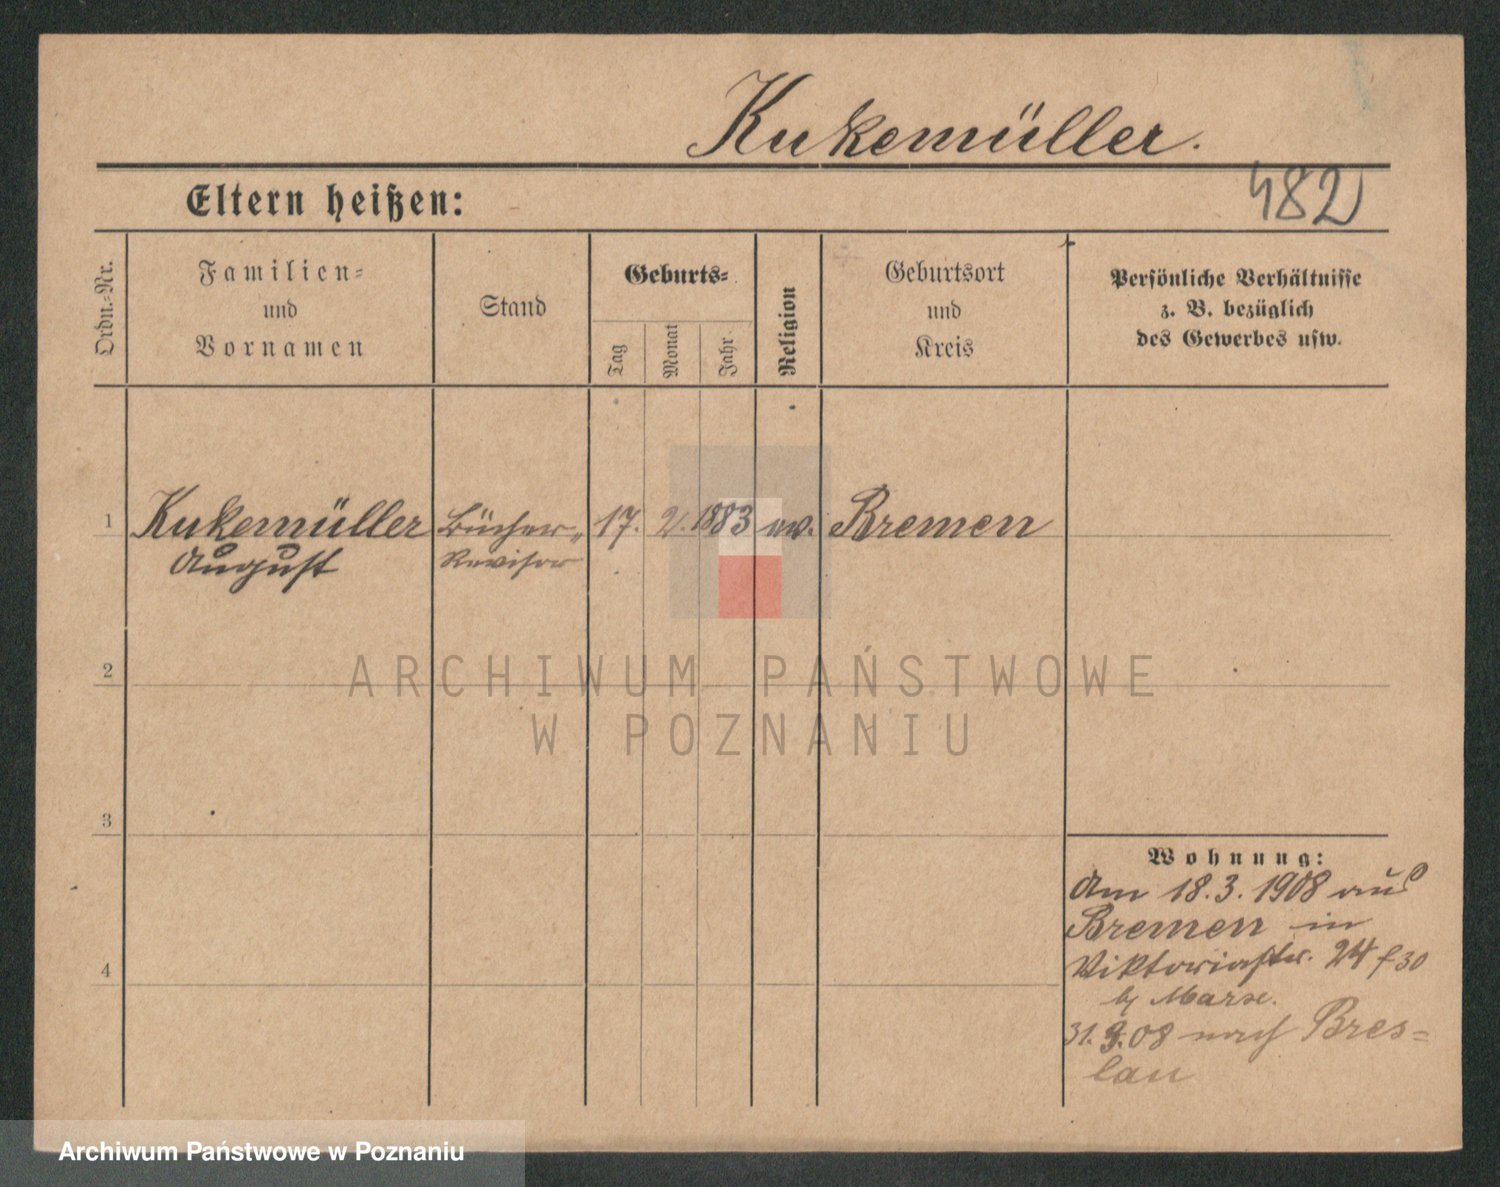 Kukemüller.
482
Eltern heißen:
Ordn.-Nr.
Familien-
und
Vornamen
Stand
Geburts-
Tag
Monat
Jahr
Religion
Geburtsort
und
Kreis
Persönliche Verhältnisse
z. B. bezüglich
des Gewerbes usw.
1 Kukemüller Bücher- 17. 2. 1883 ev. Bremen
August Revisor
2
ARCHIWUM PAŃSTWOWE
W POZNANIU
3
Wohnung:
Am 18.3.1908 aus
Bremen in
4
Viktoriastr. 24 f 30
b/ Marx.
31. 08 nach Bres=
lau
Archiwum Państwowe w Poznaniu